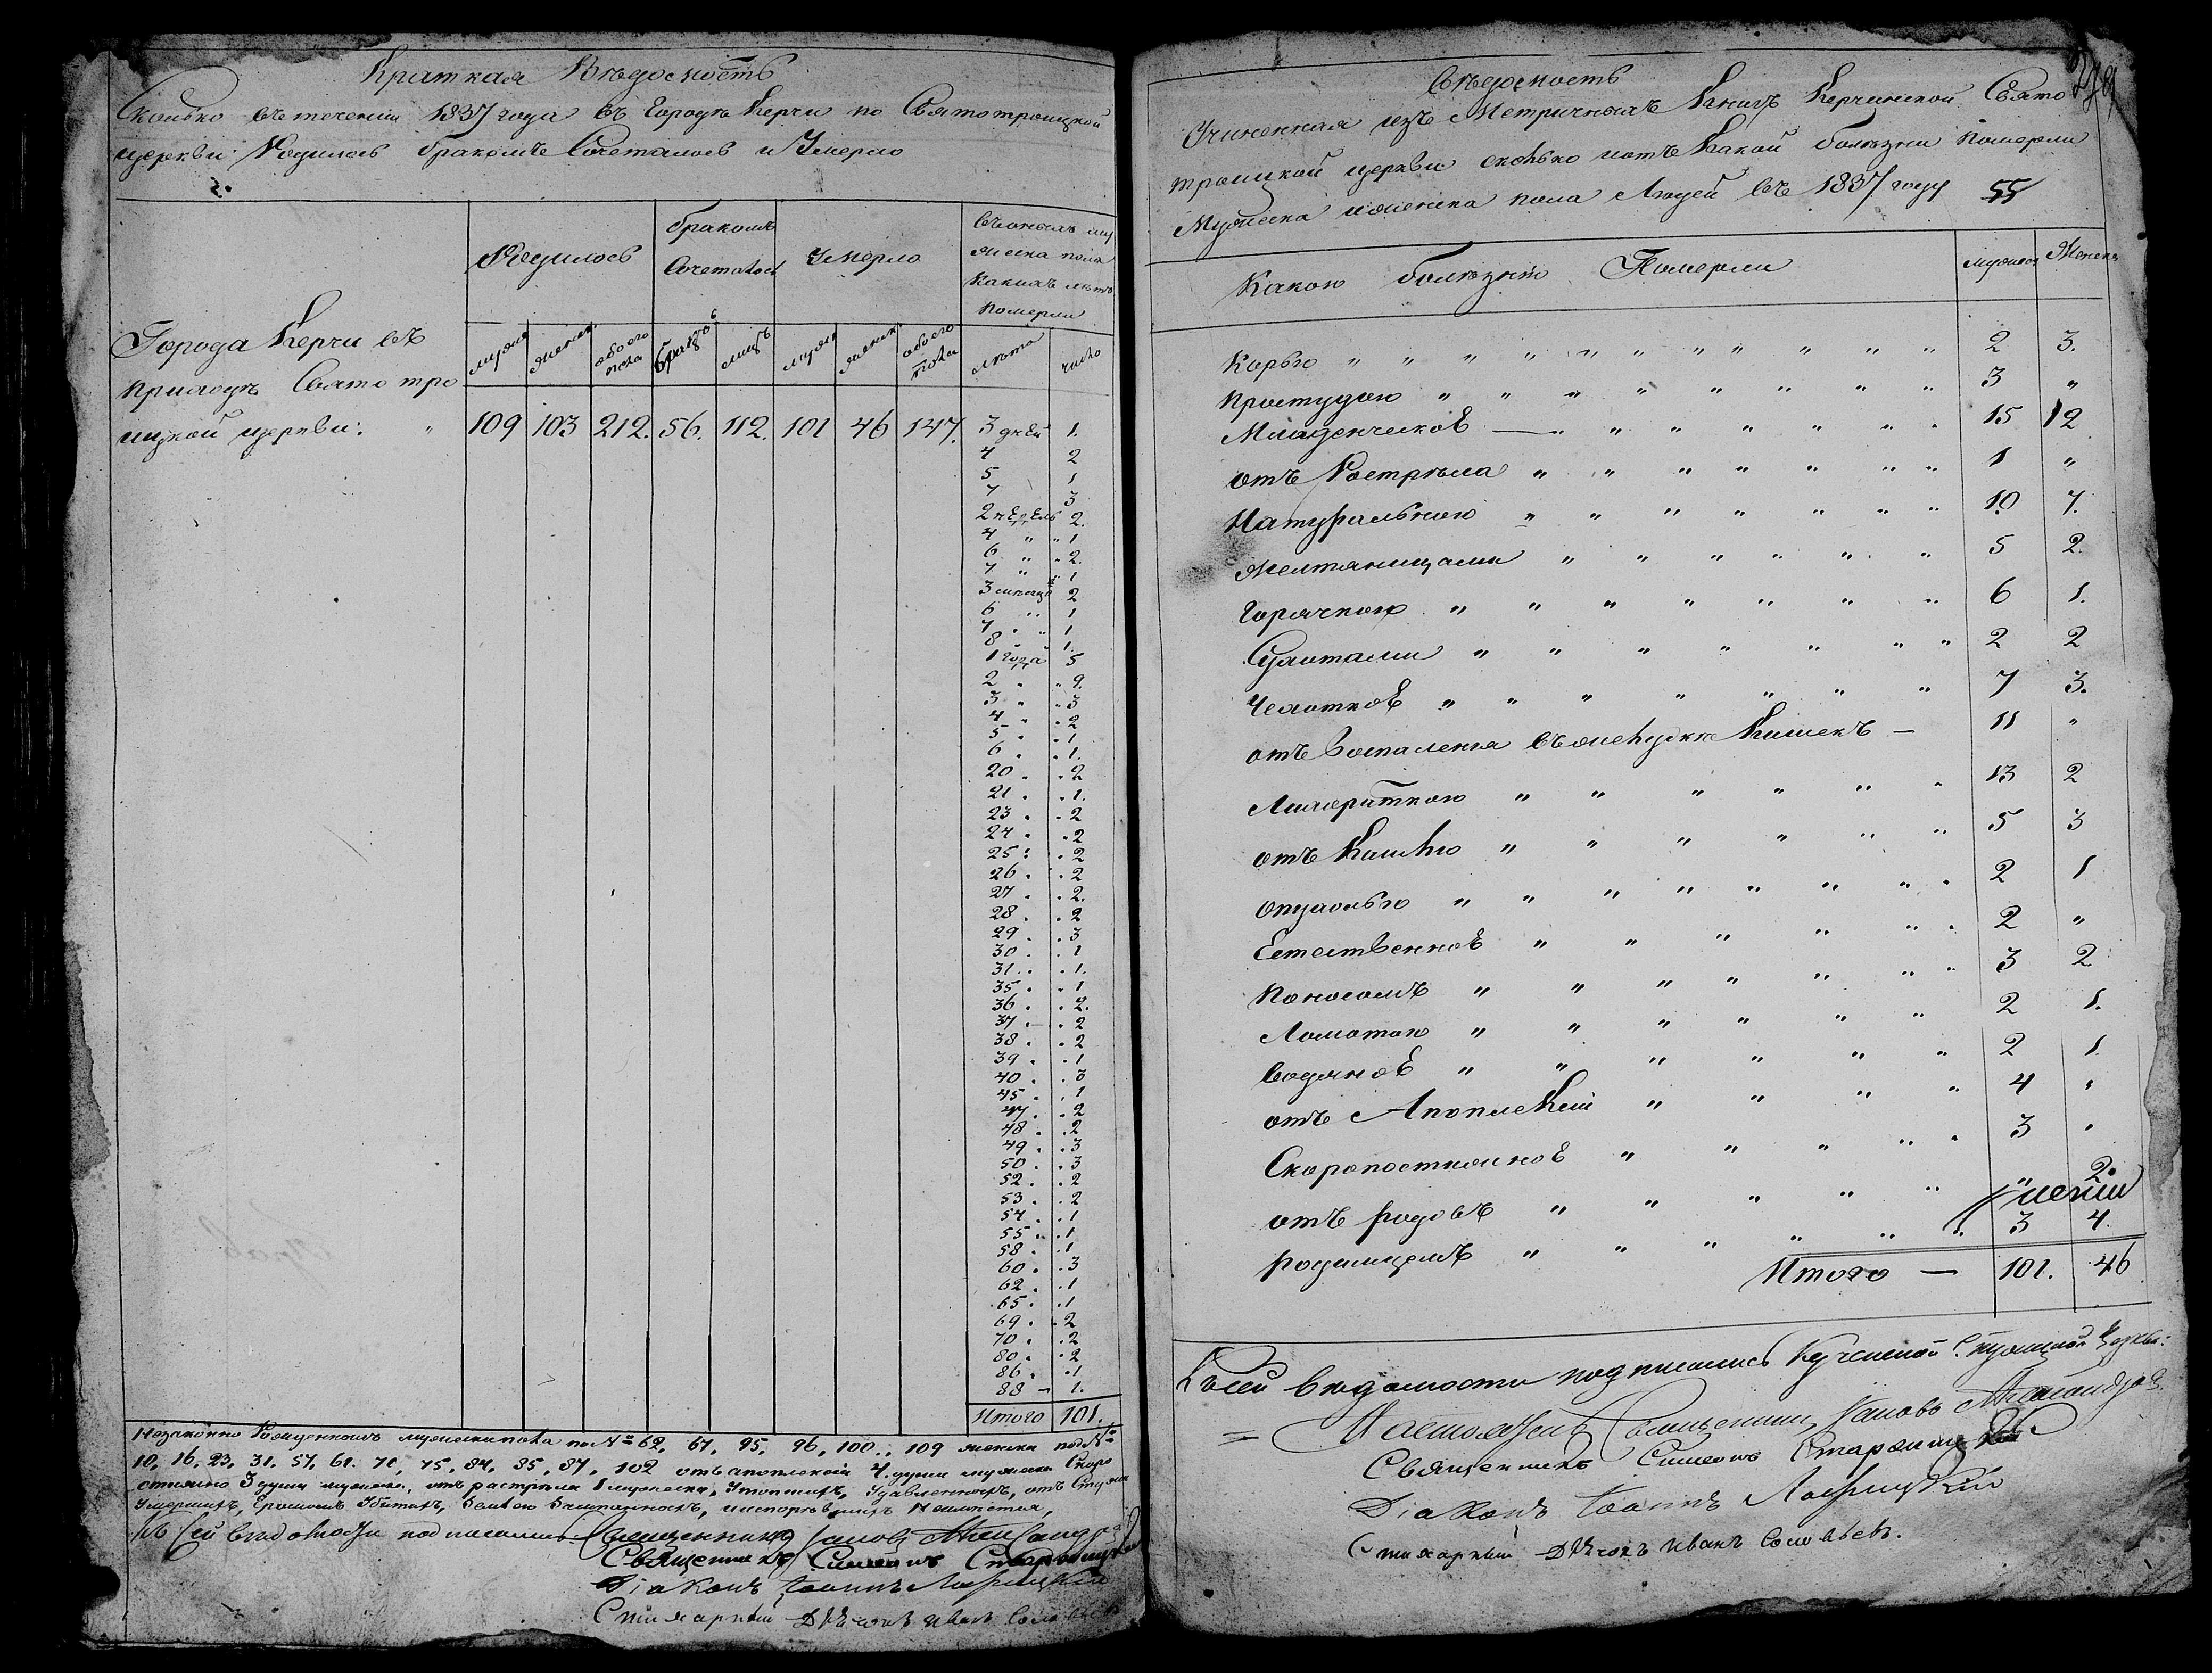 Краткая Вѣдомость
Сколько въ течении 1837 года въ Городѣ Керчи по Святотроицкой
церкви Родилось бракомъ Сочеталось и Умерло
Родилось
бракомъ
Сочеталось
Умерло
въ оныхъ му
жеска пола
Какихъ лѣтъ
Померли
мужеск женск обоего пола браковъ лицъ мужск женск обоего пола лѣта число
Города Керчи въ
приходѣ Свято тро
ицкой церкви: „ 109 103 212. 56. 112. 101 46 147. 3 дней 1.
4 2
5 1
7 3
2 недѣль 2.
4 „ „ 1
6 „ „ 2.
7 „ „ 1
3 месяца 2
6 „ 1
7 „ 1
8 1.
1 года 5
2 . . 9.
3 . . 3
4 . . 2
5 . . 1
6 . . 1.
20 . . 2
21 . . 1.
23 . . 2
24 . . 2
25 . . 2
26 . . 2
27 . . 2.
28 . . 2
29 . . 3
30 . . 1
31 . . 1.
35 . . 1
36 . . 2.
37 . . 2
38 . . 2
39 . . 1
40 . . 3
45 . . 1
47 . . 2
48 . . 2
49 . . 3
50 . . 3
52 . . 2
53 . . 2
54 . . 1
55 . . 1
58 . . 1
60 . . 3
62 . . 1
65 . . 1
69 . . 2
70 . . 2
80 . . 2
86 . . 1
88 – 1.
Итого 101.
Незаконно Рожденныхъ мужеска пола по № 62, 67, 95, 96, 100, 109 женска под №
10, 16, 23, 31, 57, 61, 71, 75, 84, 85, 87, 102 отъ апоплексіи 4. души мужеска Скоро
стижно 3 души мужеска, отъ растрела 1 мужеска, Утопшихъ, Удавленныхъ, отъ Стужи
Умершихъ, Громомъ Убитыхъ, Землею
Къ Сей Вѣдомости подписались: Священникъ Іаковъ Александровъ
Священникъ Симеонъ
Діаконъ Іоаннъ
Стихарный Дьячокъ Иванъ Соловьевъ
Вѣдомость
Учиненная изъ Метричныхъ Книгъ Керчинской Свято
троицкой церкви сколько и отъ Какой болѣзни померли
Мужеска и женска пола Людей въ 1837 году 55
Какою болѣзнію Померли мужеска Женска
Корью „ „ „ „ „ „ 2 3.
Простудою „ „ „ „ „ 3 „
Младенческоё — „ „ „ „ 15 12
отъ Ростреѣла „ „ „ „ 1 „
Натуральною „ „ „ „ „ 10 7.
Желтяницами „ „ „ „ „ 5 2.
Горячкою „ „ „ „ „ 6 1.
Сухотами „ „ „ „ „ 2 2
Чехоткоё „ „ „ „ „ 7 3.
отъ Воспаления въ желудкѣ Кишекъ — 11 „
Лихораткою „ „ „ „ „ 13 2
отъ Кашлю „ „ „ „ „ 5 3
опухолью „ „ „ „ „ 2 1
Естественноё „ „ „ „ „ 2 „
Поносомъ „ „ „ „ „ 3 2
Ломотою „ „ „ „ „ 2 1.
Водяноё „ „ „ „ „ 2 1.
отъ Апоплексіи „ „ „ „ 4 „
Скоропостижноё „ „ „ „ 3 „
отъ родовъ „ „ „ „ „ 2.
родимцемъ „ „ „ „ „ 3 4.
Итого — 101. 46
Къ сей вѣдомости подписались Керченской С. Троицкой Церкви:
Священникъ Іаковъ Александровъ
Священникъ Симеонъ
Діаконъ Іоаннъ
Стихарный Дьячокъ Иванъ Соловьевъ.